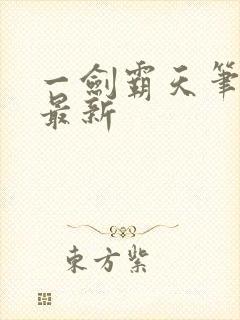 一劍霸天筆
最新
東方紫